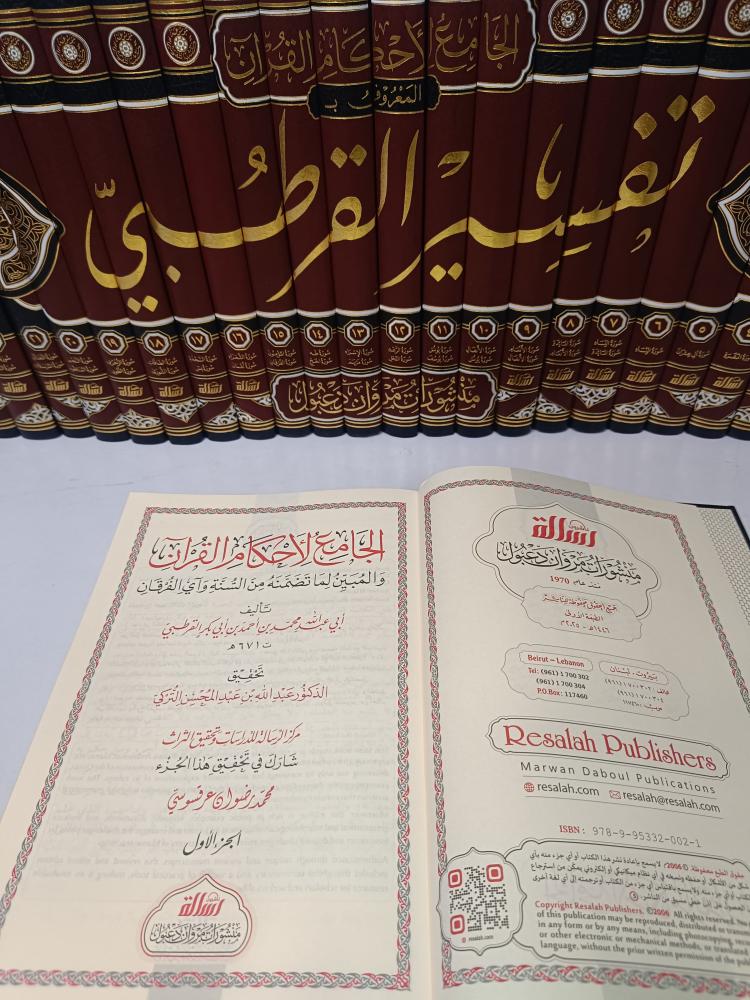 الجامع لأحكام القرآن
المعروف بـ
تفسير القرطبيّ
٢١ ٢٠ ١٩ ١٨ ١٧ ١٦ ١٥ ١٤ ١٣ ١٢ ١١ ١٠ ٩ ٨ ٧ ٦ ٥ ٤
منشورات مروان دعبول
رسالة
منشورات مروان دعبول
منذ عام 1970
جميع الحقوق محفوظة للناشر
الطبعة الأولى
١٤٤٦هـ - ٢٠٢٥م
بيروت - لبنان
هاتف: ٧٠٠٣٠٢ ١ (٩٦١)
٧٠٠٣٠٤ ١ (٩٦١)
ص.ب: ١١٧٤٦٠
Beirut – Lebanon
Tel: (961) 1 700 302
(961) 1 700 304
P.O.Box: 117460
Resalah Publishers
Marwan Daboul Publications
resalah.com resalah@resalah.com
ISBN: 978-9-95332-002-1
حقوق الطبع محفوظة ©2006م. لا يسمح بإعادة نشر هذا الكتاب أو أي جزء منه بأي
شكل من الأشكال أو حفظه ونسخه في أي نظام ميكانيكي أو إلكتروني يمكن من استرجاع
الكتاب أو أي جزء منه. ولا يسمح باقتباس أي جزء من الكتاب أو ترجمته إلى أي لغة أخرى
الحصول على إذن خطي مسبق من الناشر.
Copyright Resalah Publishers. ©2006 All rights reserved.
of this publication may be reproduced, distributed or
in any form or by any means, including photocopying,
or other electronic or mechanical methods, or translated
language, without the prior written permission of the
resalah.com
الجامع لأحكام القرآن
والمبين لما تضمنه من السنة وآي الفرقان
تأليف
أبي عبد الله محمد بن أحمد بن أبي بكر القرطبي
ت ٦٧١هـ
تحقيق
الدكتور عبد الله بن عبد المحسن التركي
مركز الرسالة للدراسات وتحقيق التراث
شارك في تحقيق هذا الجزء
محمد رضوان عرقسوسي
الجزء الأول
رسالة
منشورات مروان دعبول